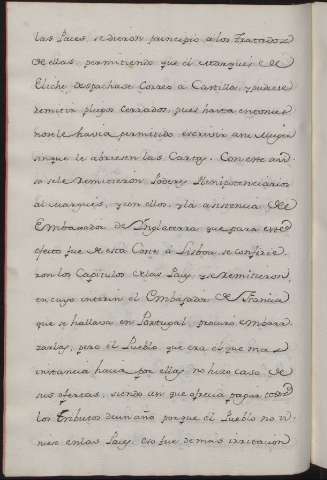 las Paces, se dieron principio a los Tratados
de ellas, permitiendo que el Marques de
Eliche, despachase Correo a Castilla, y pudiese
remitir pliegos cerrados, pues hasta entonces
no se le havia permitido escrivir a su Muger
sin que le abriesen las Cartas. Con este avi
so se le remitieron Poderes Plenipotenciarios
al Marques, y con ellos, y la asistencia del
Embaxador de Inglaterra que para este
efecto fue de esta Corte á Lisboa, se confirie
ron los Capitulos de las Pazes, y se remitieron,
en cuyo interin el Embajador de Francia
que se hallava en Portugal, procuró embara
zarlas, pero el Pueblo, que era el que mas
instancia hacia por ellas no hizo caso de
sus ofertas, siendo en que ofrecia pagar todos
los Tributos de un año porque el Pueblo no vi
niese en las Paces, eso fue de mas irritacion